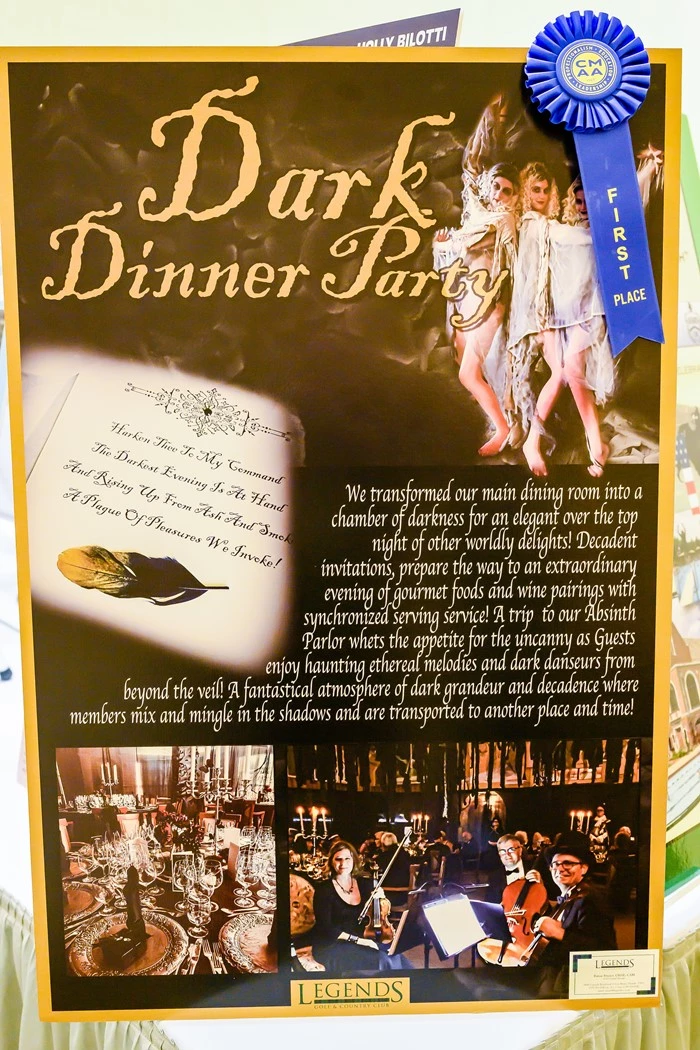 HOLLY BILOTTI
CM
AA
FIRST
PLACE
Dark
Dinner Party
Harken Thee To My Command
The Darkest Evening Is At Hand
And Rising Up From Ash And Smok
A Plague Of Pleasures We Invoke!
We transformed our main dining room into a
chamber of darkness for an elegant over the top
night of other worldly delights! Decadent
invitations, prepare the way to an extraordinary
evening of gourmet foods and wine pairings with
synchronized serving service! A trip to our Absinth
Parlor whets the appetite for the uncanny as Guests
enjoy haunting ethereal melodies and dark danseurs from
beyond the veil! A fantastical atmosphere of dark grandeur and decadence where
members mix and mingle in the shadows and are transported to another place and time!
LEGENDS
GOLF & COUNTRY CLUB
LEGENDS